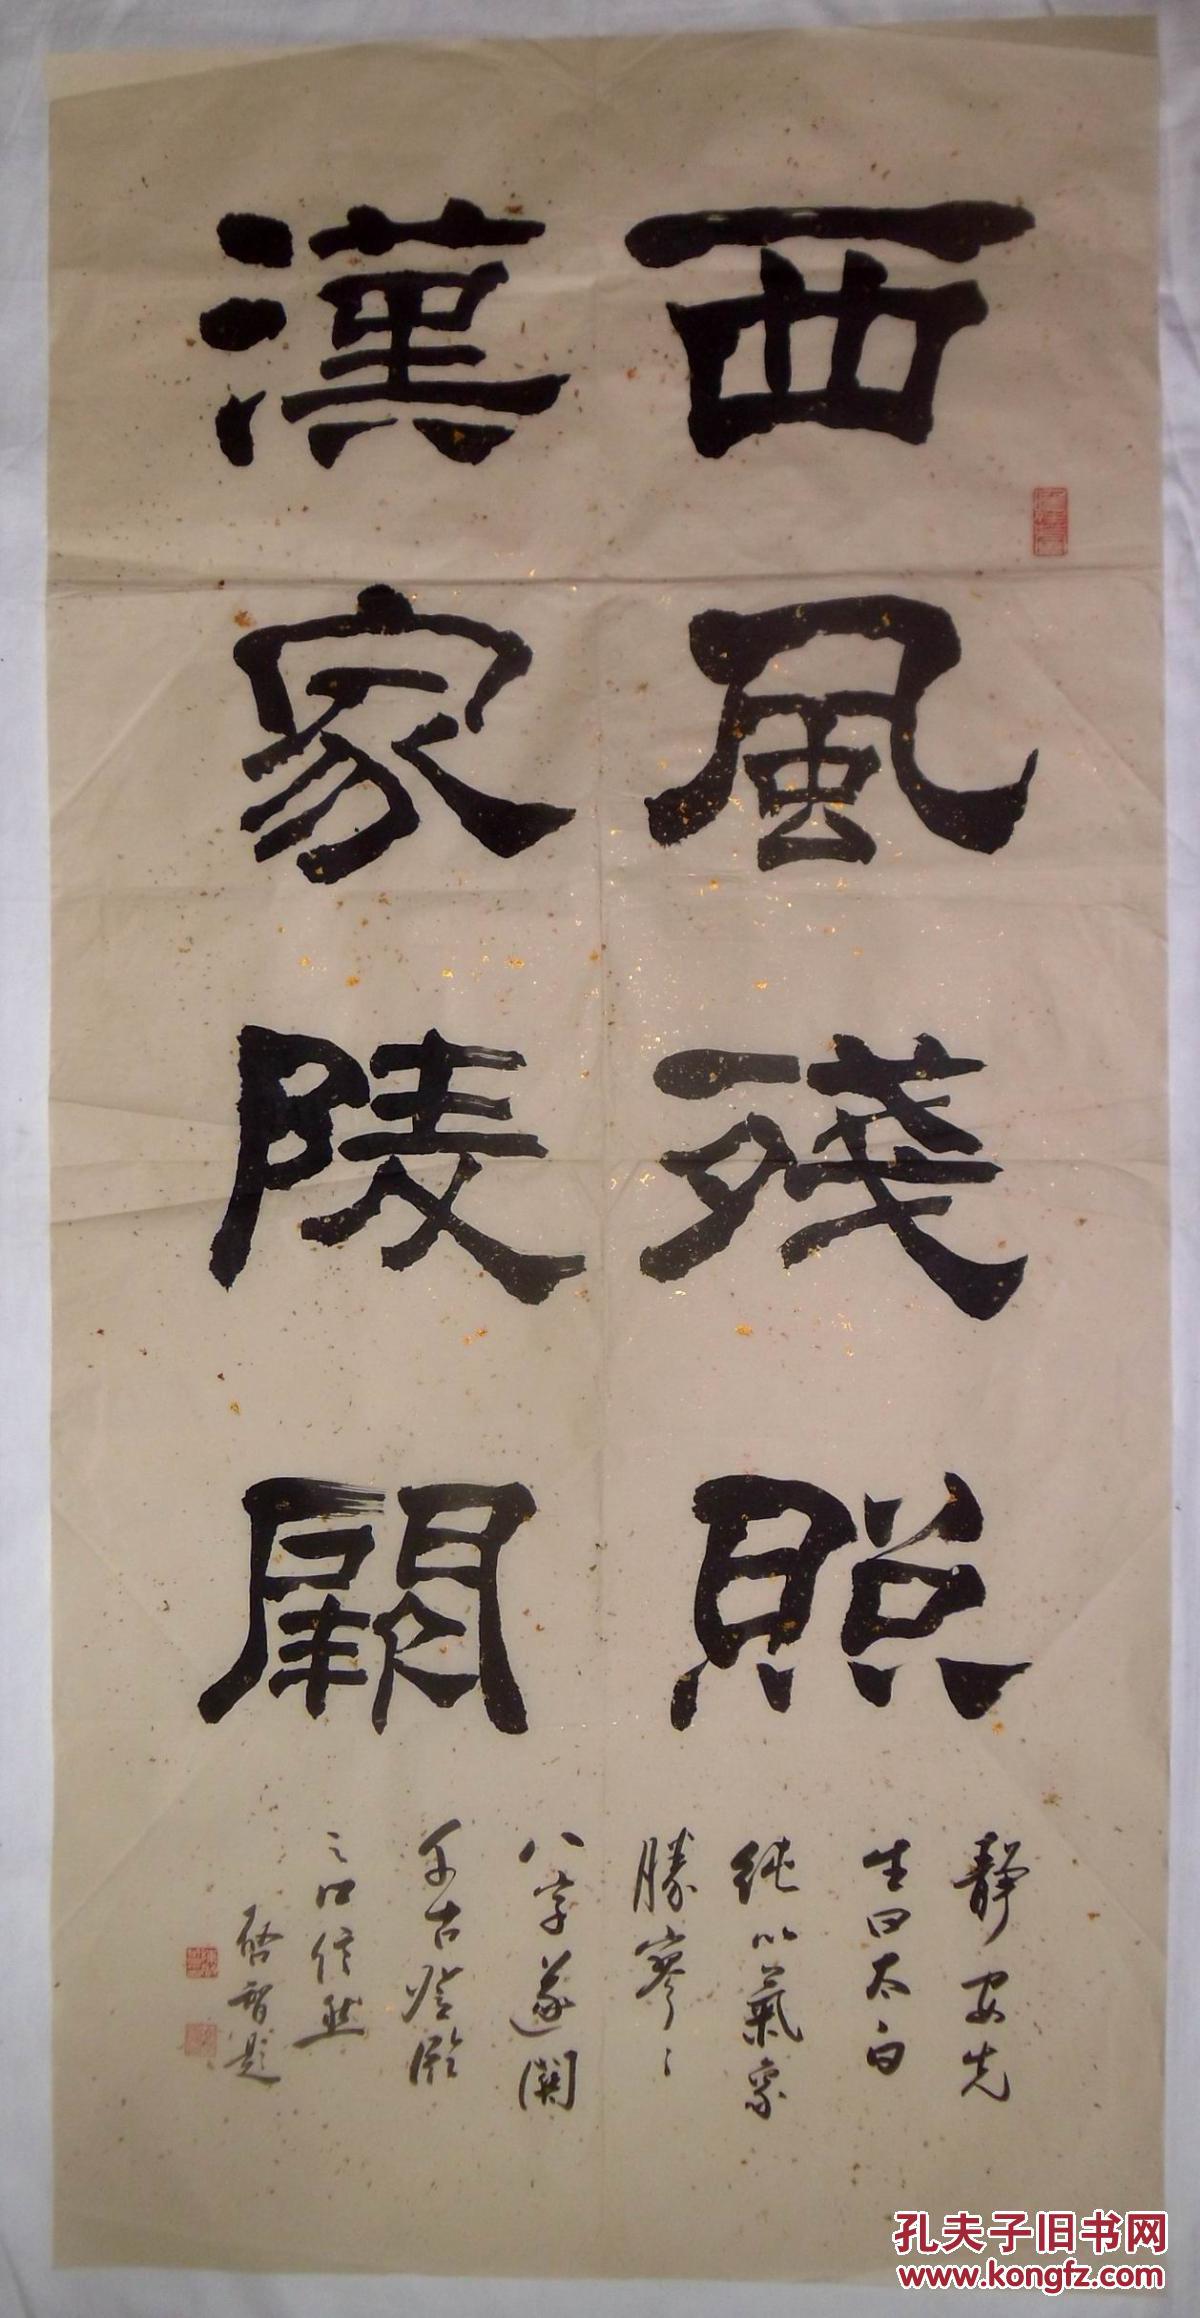 西風殘照
漢家陵闕
靜安先
生曰太白
純以氣象
勝寥〻
八字遂關
千古登臨
之口信然
啓智題
孔夫子旧书网
www.kongfz.com